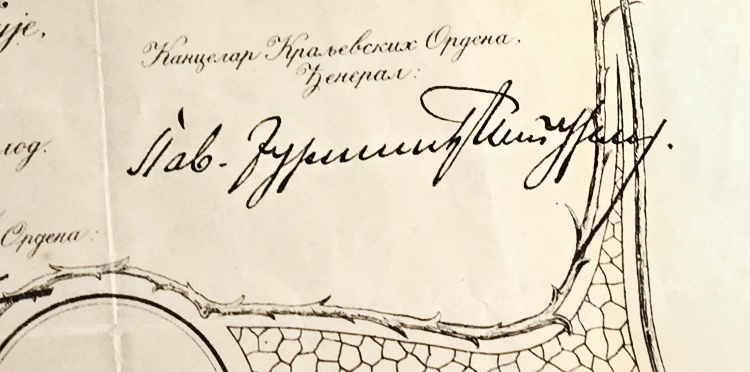 ије,
Канцелар Краљевских Ордена,
Ђенерал:
Пав. Јуришић Штурм.
лод.
Ордена: